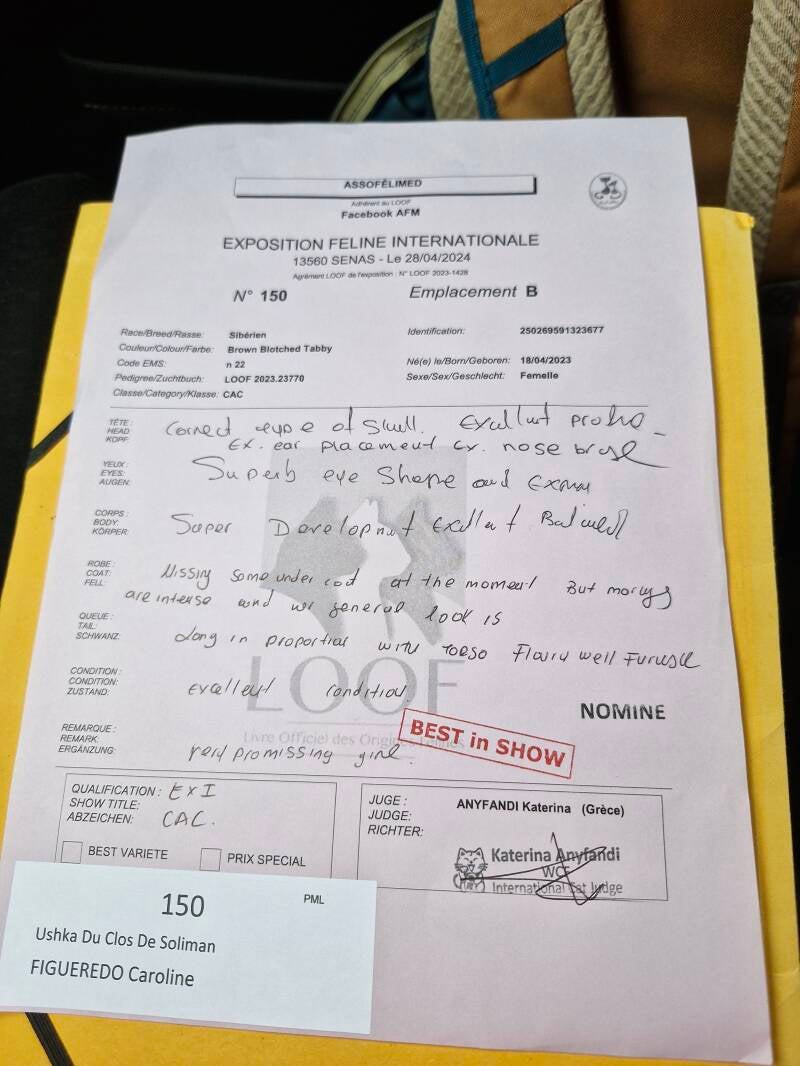 ASSOFÉLIMED
Adhérent au LOOF
Facebook AFM
EXPOSITION FELINE INTERNATIONALE
13560 SENAS - Le 28/04/2024
Agrément LOOF de l'exposition : N° LOOF 2023-1428
N° 150 Emplacement B
Race/Breed/Rasse: Sibérien Identification: 250269591323677
Couleur/Colour/Farbe: Brown Blotched Tabby
Code EMS: n 22 Né(e) le/Born/Geboren: 18/04/2023
Pedigree/Zuchtbuch: LOOF 2023.23770 Sexe/Sex/Geschlecht: Femelle
Classe/Category/Klasse: CAC
TÊTE :
HEAD
KOPF:
Correct type of skull. Excellent
Ex. ear placement ex. nose
YEUX :
EYES:
AUGEN:
Superb eye shape and
CORPS :
BODY:
KÖRPER:
Super Excellent
ROBE :
COAT:
FELL:
Missing some under at the moment But
are intense and general look is
QUEUE :
TAIL:
SCHWANZ:
Long in with torso well
CONDITION :
CONDITION:
ZUSTAND:
excellent condition
NOMINE
LOOF
Livre Officiel des Origines Félines
BEST in SHOW
REMARQUE :
REMARK:
ERGÄNZUNG:
very promissing girl.
QUALIFICATION : Ex I
SHOW TITLE:
ABZEICHEN: CAC.
BEST VARIETE PRIX SPECIAL
JUGE : ANYFANDI Katerina (Grèce)
JUDGE:
RICHTER:
Katerina Anyfandi
WCF
International Cat Judge
150 PML
Ushka Du Clos De Soliman
FIGUEREDO Caroline